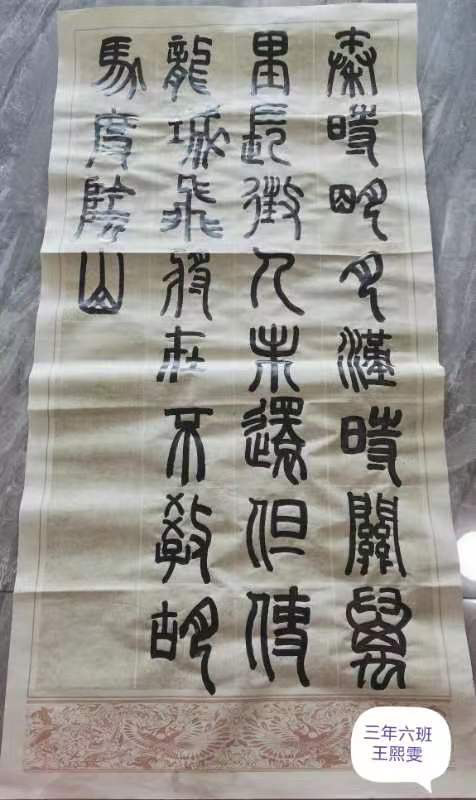 秦時明月漢時關萬
里長徵人未還但使
龍城飛將在不教胡
馬度陰山
三年六班
王熙雯